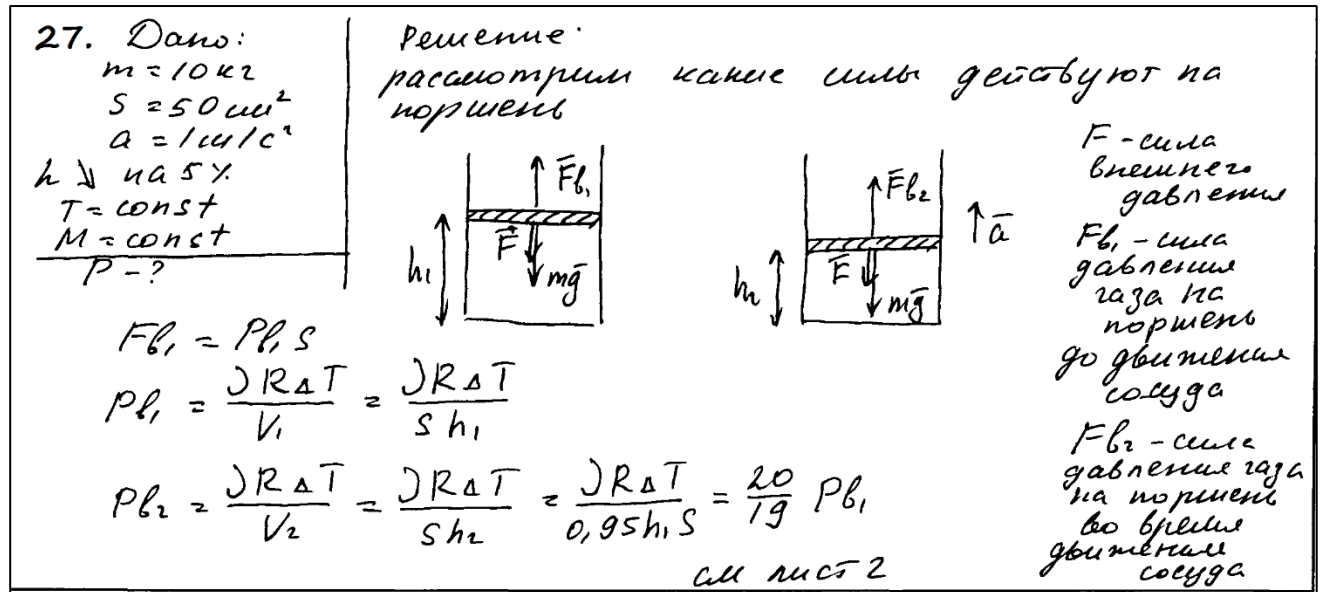 27. Дано:
m = 10 кг
S = 50 см²
a = 1 м/с²
h ↓ на 5%
T = const
M = const
P - ?
Решение:
рассмотрим какие силы действуют на
поршень
F̄в₁
F̄
mḡ
h₁
F̄в₂
F̄
mḡ
h₂
ā
F - сила
внешнего
давления
Fв₁ - сила
давления
газа на
поршень
до движения
сосуда
Fв₂ - сила
давления газа
на поршень
во время
движения
сосуда
Fв₁ = Pв₁ S
Pв₁ = νRΔT / V₁ = νRΔT / S h₁
Pв₂ = νRΔT / V₂ = νRΔT / S h₂ = νRΔT / 0,95h₁S = 20/19 Pв₁
см лист 2